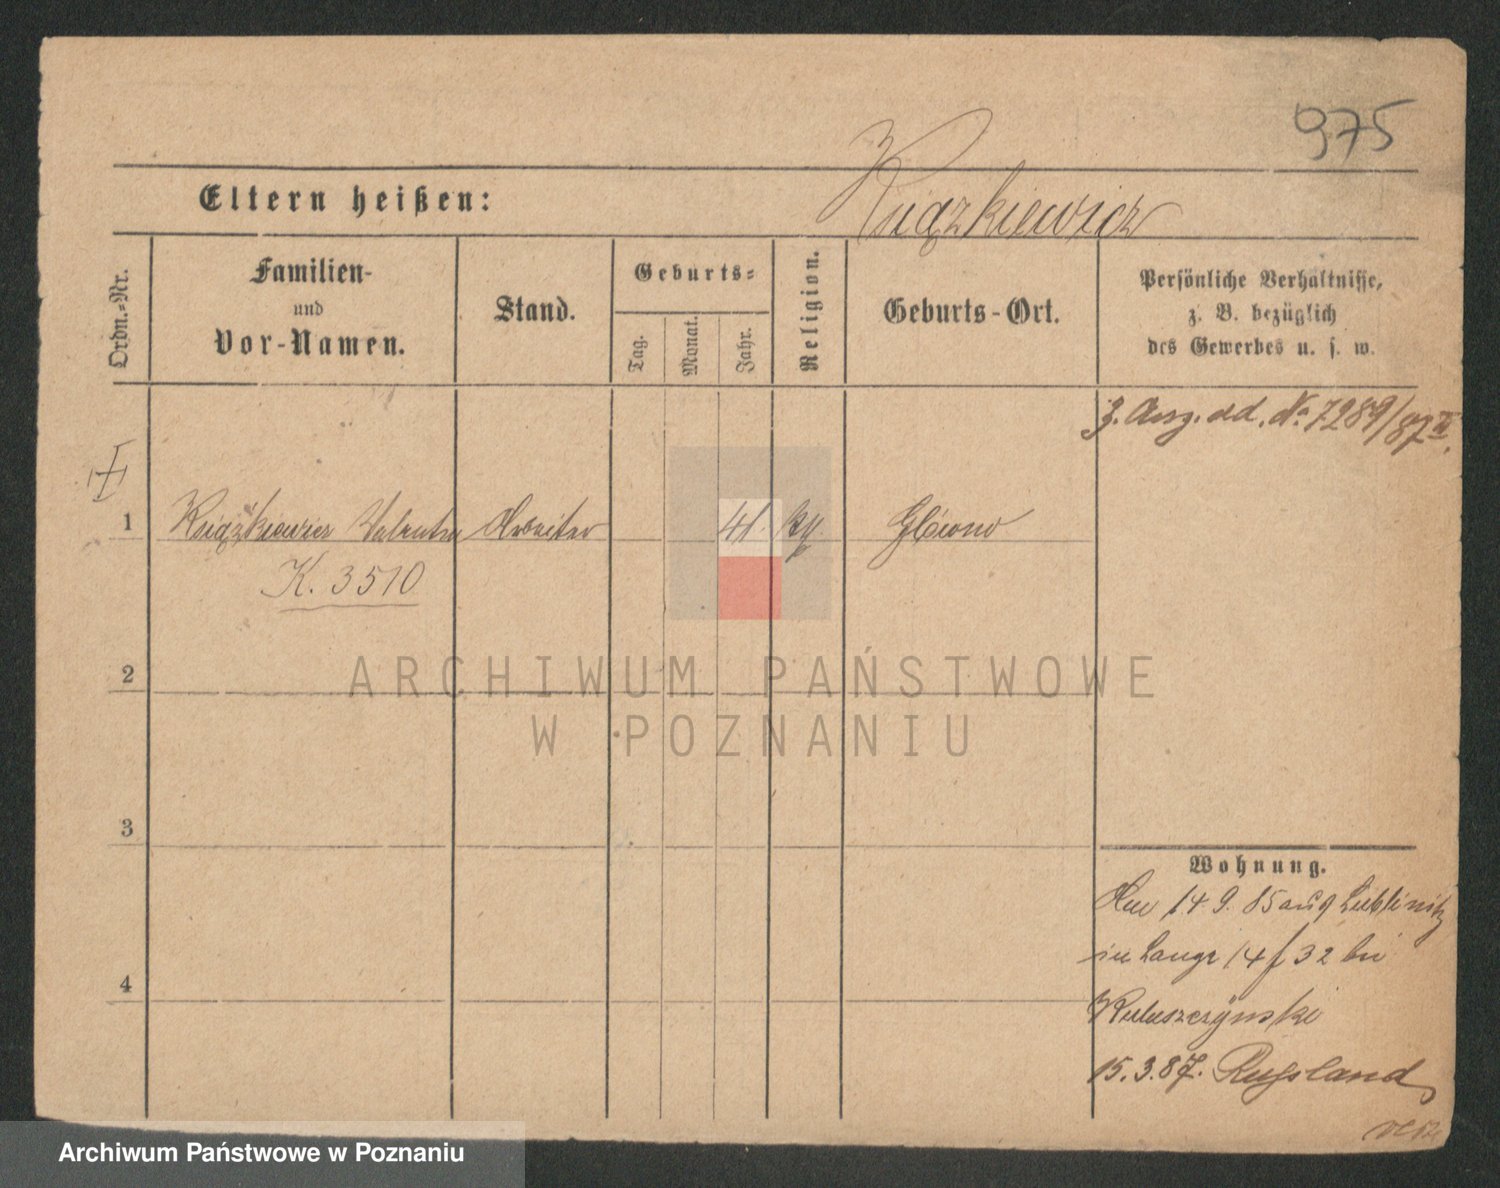 975
Książkiewicz
Eltern heißen:
Ordn.-Nr.
Familien-
und
Vor-Namen.
Stand.
Geburts-
Tag.
Monat.
Jahr.
Religion.
Geburts-Ort.
Persönliche Verhältnisse,
z. B. bezüglich
des Gewerbes u. s. w.
z. Ausg. dd. No. 7289/87 II.
1 Książkiewicz Valentin Arbeiter 41. kth Główno
K. 3510
2
ARCHIWUM PAŃSTWOWE
W POZNANIU
3
4
Wohnung.
14 9. 85 aus Lublinitz
in Lange 14 f 32 bei
15.3.87. Russland
Archiwum Państwowe w Poznaniu